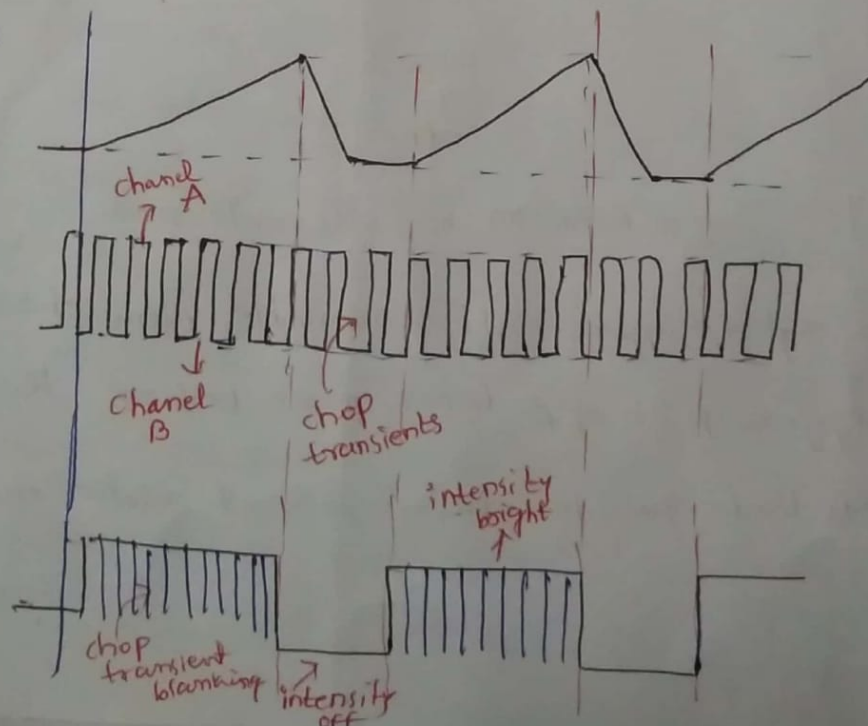 chanel
A
chanel
B
chop
transients
intensity
bright
chop
transient
blanking
intensity
OFF